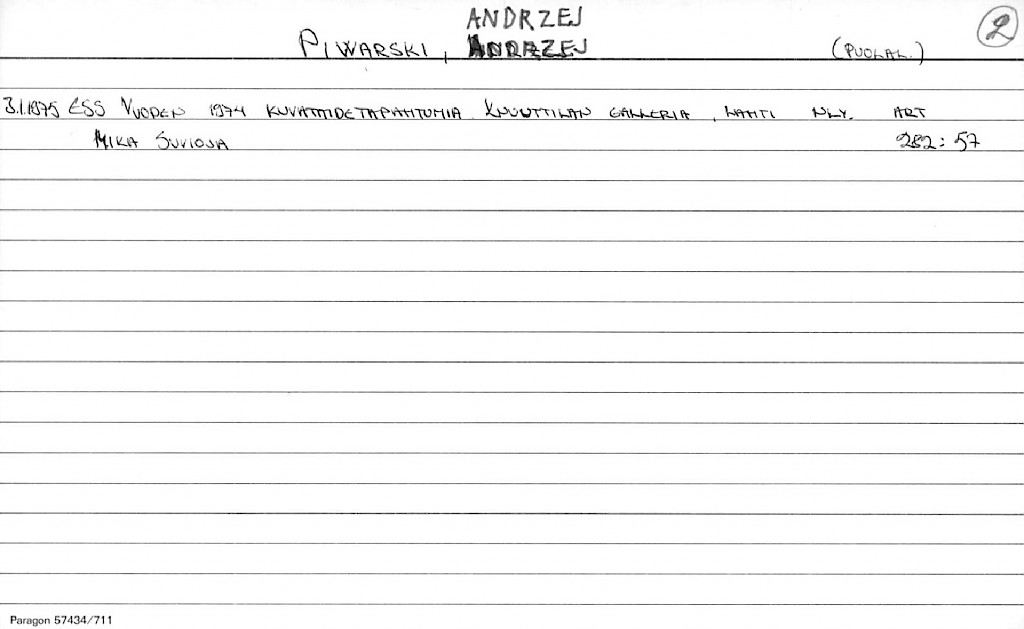 ANDRZEJ
PIWARSKI, ANDRZEJ (PUOLAL.) 2
3.1.1975 ESS VUODEN 1974 KUVATAIDETAPAHTUMIA. KNUUTTILAN GALLERIA, LAHTI NLY. ART
MIKA SUVIOJA 282:57
Paragon 57434/711